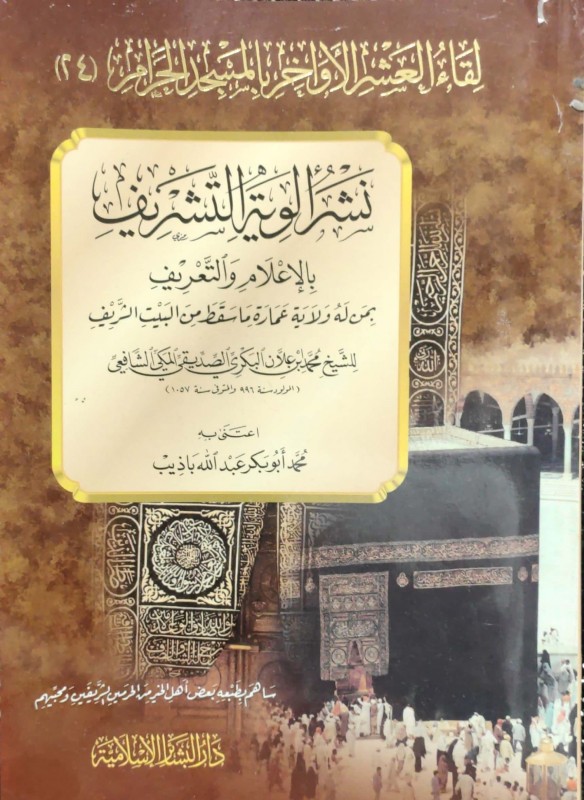 لِقَاءُ العَشْرِ الأَوَاخِرِ بِالمَسْجِدِ الحَرَامِ (٢٤)
نَشْرُ أَلْوِيَةِ التَّشْرِيفِ
بِالإِعْلَامِ وَالتَّعْرِيفِ
بِمَنْ لَهُ وَلَايَةُ عِمَارَةِ مَا سَقَطَ مِنَ البَيْتِ الشَّرِيفِ
للشيخ محمد ابن علان البكري الصديقي المكي الشافعي
(المولود سنة ٩٩٦ والمتوفى سنة ١٠٥٧)
اعتنى به
محمد أبو بكر عبد الله باذيب
ساهم بطبعه بعض أهل الخير من الحرمين الشريفين ومحبيهم
دار البشائر الإسلامية